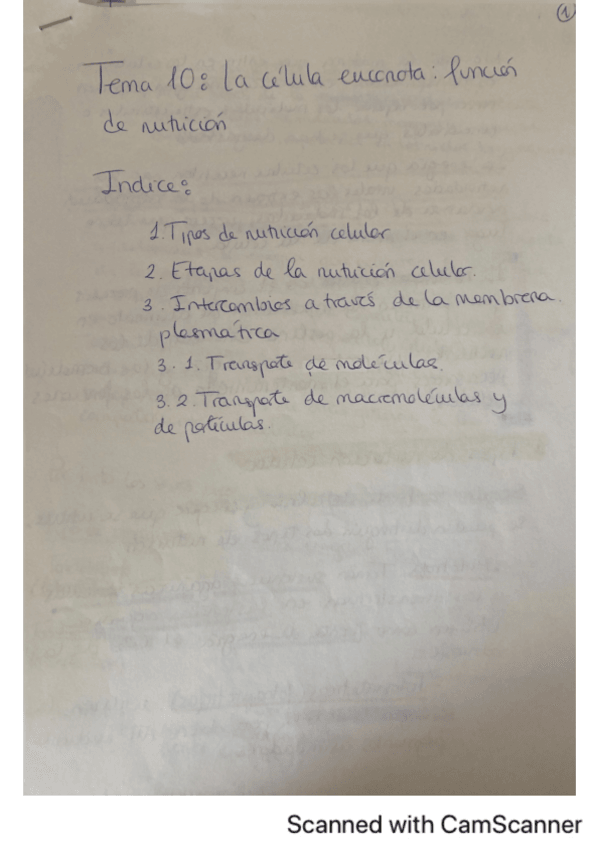 1
Tema 10: La célula eucariota: función
de nutrición
Indice:
1. Tipos de nutrición celular
2. Etapas de la nutrición celular.
3. Intercambios a través de la membrana
plasmática
3.1. Transporte de moléculas.
3.2. Transporte de macromoléculas y
de partículas.
Scanned with CamScanner